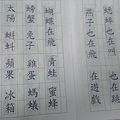 蟋蟀也在叫
也在跳
燕子也在飛
在遊戲
蝴蝶在飛
青蛙 蜜蜂
螃蟹 兔子 雞蛋 螞蟻
太陽 蝌蚪 蘋果 冰箱